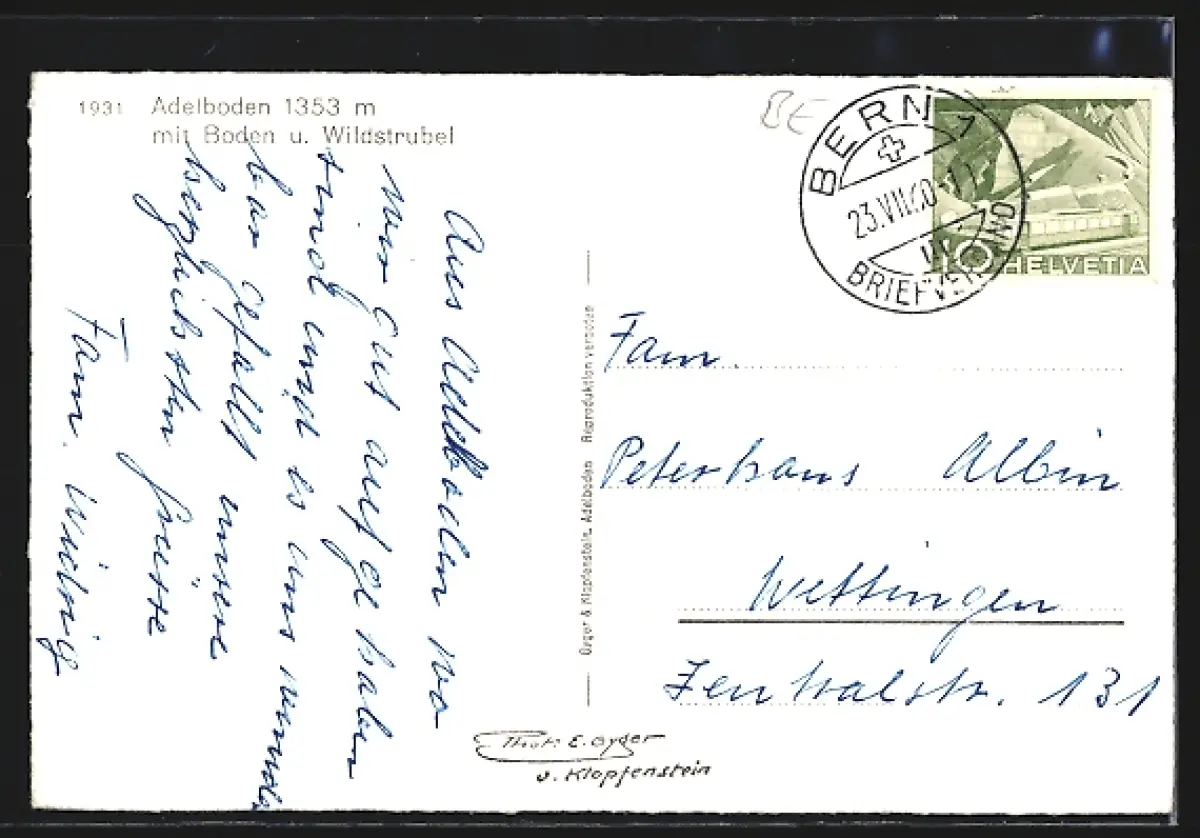 1931 Adelboden 1353 m
mit Boden u. Wildstrubel
BE
BERN 1
23.VII.60
BRIEFVERSAND
10 HELVETIA
Aus Adelboden wo
wir gut aufgehoben
sind und es uns wunder
bar gefällt unsere
herzlichsten Grüsse
Fam.
Gyger & Klopfenstein, Adelboden Reproduktion verboten
Fam.
Peterhans Albin
Wettingen
Zentralstr. 131
Phot. E. Gyger
u. Klopfenstein